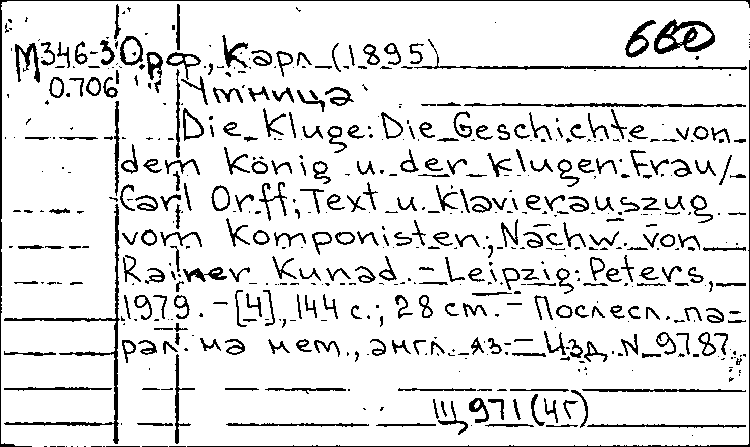 ббо
М346-3 Орф, Карл (1895)
О.706 "Умница"
Die Kluge: Die Geschichte von
dem König u. der klugen Frau /
Carl Orff; Text u. Klavierauszug
vom Komponisten; Nachw. von
Rainer Kunad. - Leipzig: Peters,
1979. - [4], 144 с.; 28 cm. - Послесл. па=
рал. на нем., англ. яз. - Изд. N 9787.
Щ971(4Г)